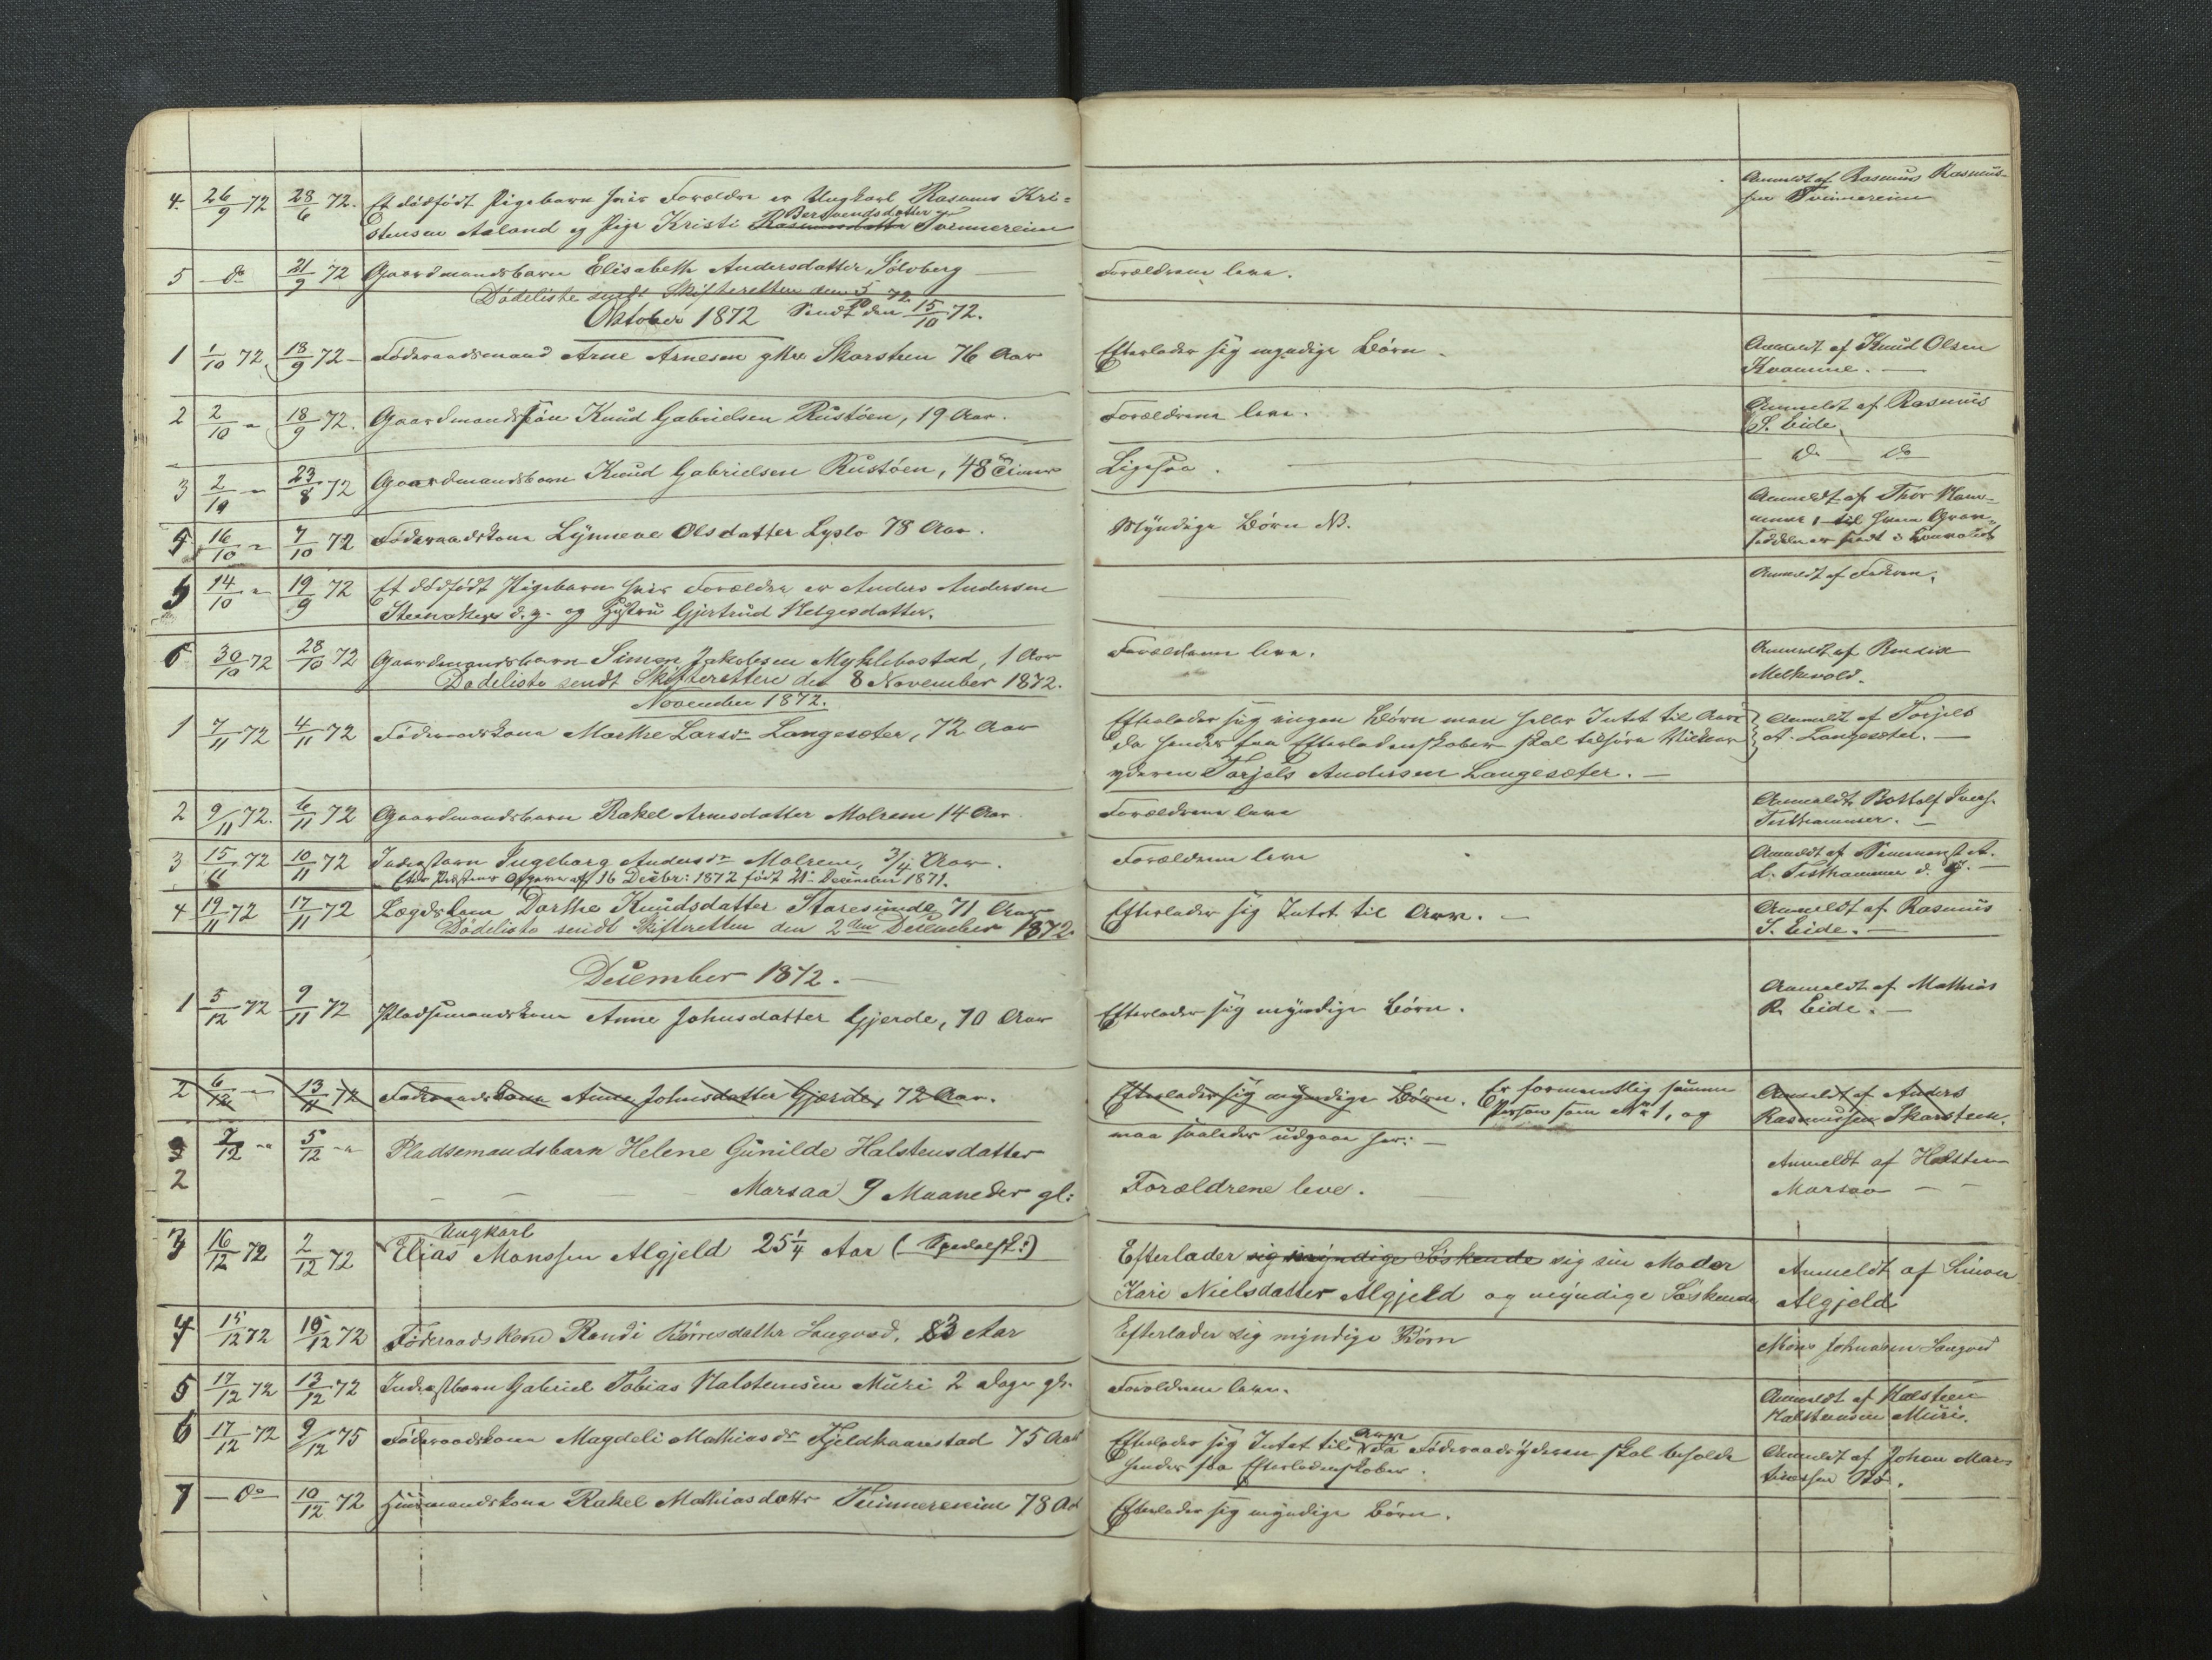 4. 26/9 72 28/6 72. Et dødfødt Pigebarn hvis Forældre er Ungkarl Rasmus Kri-
stensen Aaland og Pige Kristi Rasmusdatter Bersvendsdatter Tvinnereim
Anmeldt af Rasmus Rasmus-
sen Tvinnereim
5 do 21/9 72 Gaardmandsbarn Elisabeth Andersdatter Sølvberg
Forældrene leve.
Dödeliste sendt Skifteretten den 5/10 72.
Oktober 1872 Sendt den 15/10 72.
1 1/10 72 18/9 72 Föderaadsmand Arne Arnesen Skarsteen 76 Aar
Efterlader sig myndige Börn.
Anmeldt af Knud Olsen
Kvamme.
2 2/10 " 18/9 72. Gaardmandssön Knud Gabrielsen Rustöen, 19 Aar.
Forældrene leve.
Anmeldt af Rasmus
S. Eide
3 2/10 " 23/8 72 Gaardmandsbarn Knud Gabrielsen Rustöen, 48 Timer
Ligesaa.
do do
4 16/10 " 7/10 72 Föderaadskone Lynneve Olsdatter Lyslo 78 Aar.
Myndige Börn NB.
Anmeldt af Thor Ham-
mer, til hvem
sendt
5 14/10 " 19/9 72 Et dödfödt Pigebarn hvis Forældre er Anders Andersen
Steenaker d.y. og Hustru Gjertrud Helgesdatter.
Anmeldt af Faderen.
6 30/10 72 28/10 72 Gaardmandsbarn Simon Jakobsen Myklebostad, 1 Aar
Forældrene leve.
Anmeldt af Bendix
Melkevold.
Dödeliste sendt Skifteretten det 8 November 1872.
November 1872.
1 7/11 72 4/11 72 Föderaadskone Marthe Larsdr Langesæter, 72 Aar
Efterlader sig ingen Börn men heller Intet til Arv
da hendes faa Efterladenskaber skal tilhöre
yderen Torjels Andersen Langesæter.
Anmeldt af Torjels
A. Langesæter.
2 9/11 72. 6/11 72 Gaardmandsbarn Rakel Arnesdatter Molrem 14 Aar
Forældrene leve
Anmeldt Bottolf Ivers.
Tisthammer.
3 15/11 72 10/11 72 Inderstbarn Ingeborg Andersdr Molrem, 3/4 Aar.
Efter Præstens Opgave af 16 Decbr: 1872 født 21 December 1871.
Forældrene leve
Anmeldt af
L. Tisthammer d. y.
4 19/11 72 17/11 72 Lægdskone Dorthe Knudsdatter Staresunde 71 Aar
Efterlader sig Intet til Arv.
Anmeldt af Rasmus
S. Eide.
Dödeliste sendt Skifteretten den 2den December 1872.
December 1872.
1 5/12 72 9/11 72 Pladsemandskone Anne Johnsdatter Gjerde, 70 Aar
Efterlader sig myndige Börn.
Anmeldt af Mathias
R. Eide.
2 6/12 " 13/11 72 Föderaadskone Anne Johnsdatter Gjerde, 72 Aar.
Efterlader sig myndige Börn. Er formentlig samme
Person som No 1, og
maa saaledes udgaa her:
Anmeldt af Anders
Rasmussen Skarsteen.
3 7/12 " 5/12 " Pladsemandsbarn Helene Gunilde Halstensdatter
2 Marsaa 9 Maaneder gl:
Forældrene leve.
Anmeldt af Halsten
Marsaa
3 16/12 72 2/12 72 Ungkarl
Elias Monssen Algjeld 25 1/4 Aar (Spedalsk:)
Efterlader sig myndige Söskende sig sin Moder
Kari Nielsdatter Algjeld og myndige Söskende
Anmeldt af Simon
Algjeld
4 15/12 72 15/12 72 Föderaadskone Randi Børresdatter Langvad, 83 Aar
Efterlader sig myndige Börn
Mons Johnasen Langvad
5 17/12 72 13/12 72 Inderstbarn Gabriel Tobias Halstensen Muri 2 Dage gl.
Forældrene leve.
Anmeldt af Halsteen
Halstensen Muri.
6 17/12 72 9/12 75 Föderaadskone Magdeli Mathiasdr Kjeldhaarstad 75 Aar
Efterlader sig Intet til Arv da Föderaadsyderen skal beholde
hendes faa Efterladenskaber.
Anmeldt af Johan Mar-
tinussen Bö.
7 do 10/12 72 Huusmandskone Rakel Mathiasdattr Tvinnereim 78 Aar
Efterlader sig myndige Börn.